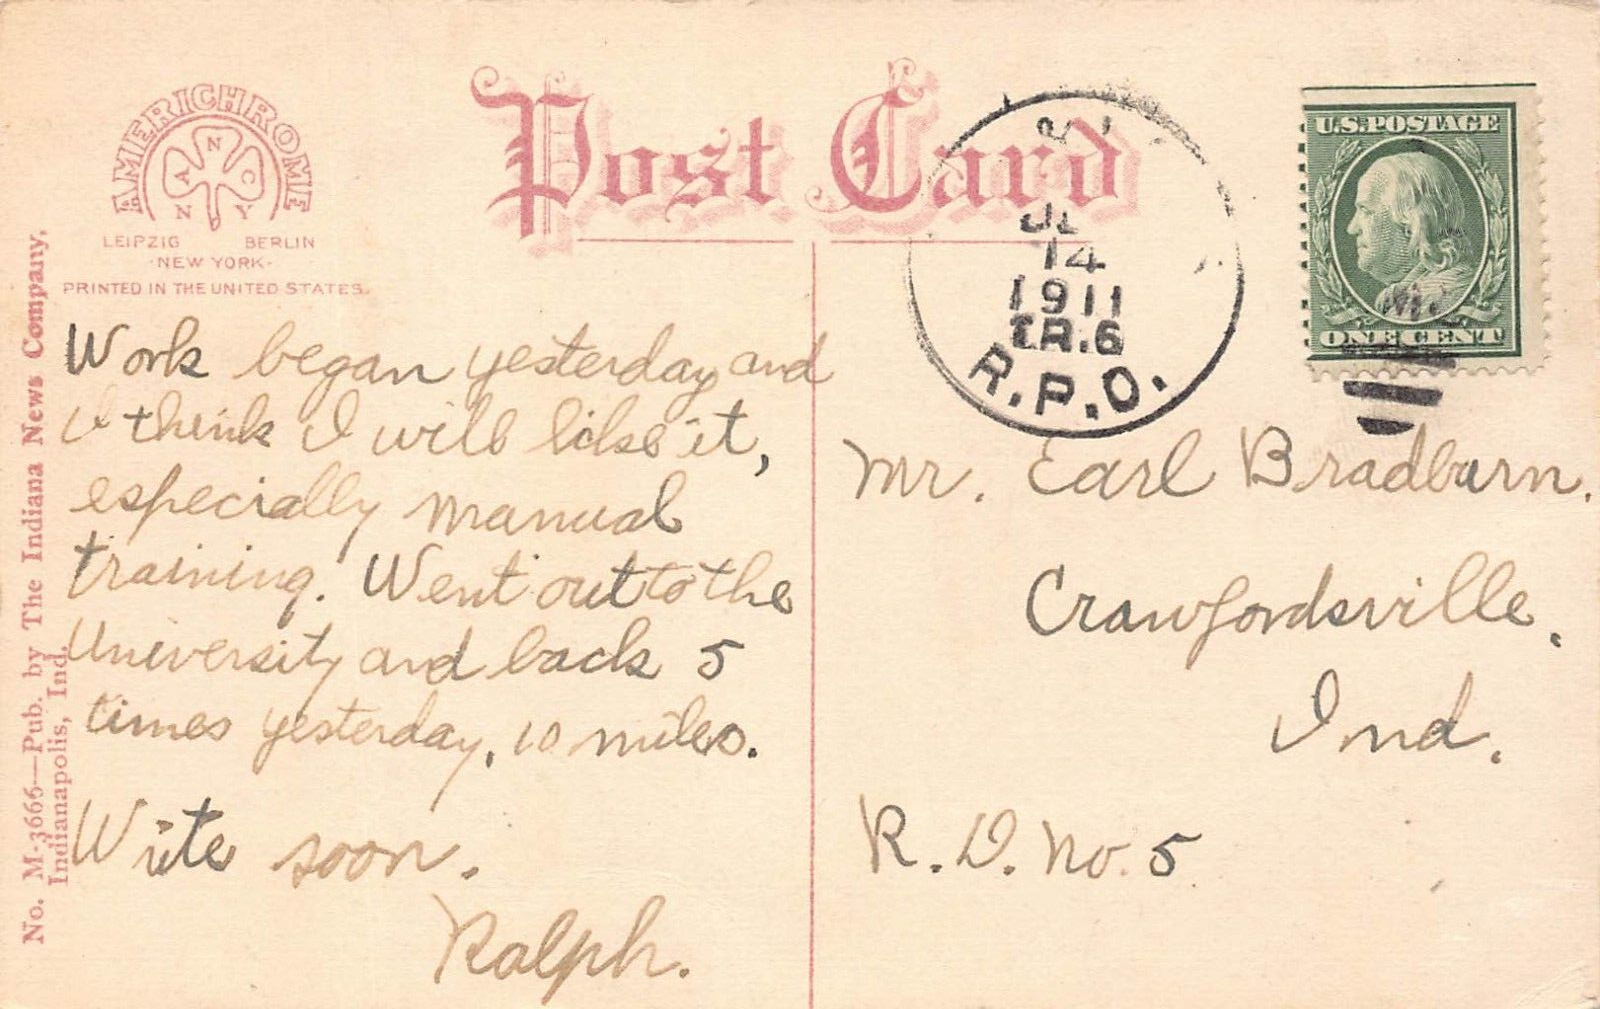 AMERICHROME
N
A C
N Y
LEIPZIG BERLIN
·NEW YORK·
PRINTED IN THE UNITED STATES.
Post Card
14
1911
TR.6
R.P.O.
U.S. POSTAGE
ONE CENT
No. M-3666—Pub. by The Indiana News Company,
Indianapolis, Ind.
Work began yesterday and
I think I will like it,
especially manual
training. Went out to the
University and back 5
times yesterday, 10 miles.
Write soon.
Ralph.
Mr. Earl Bradburn.
Crawfordsville,
Ind.
R. D. No. 5